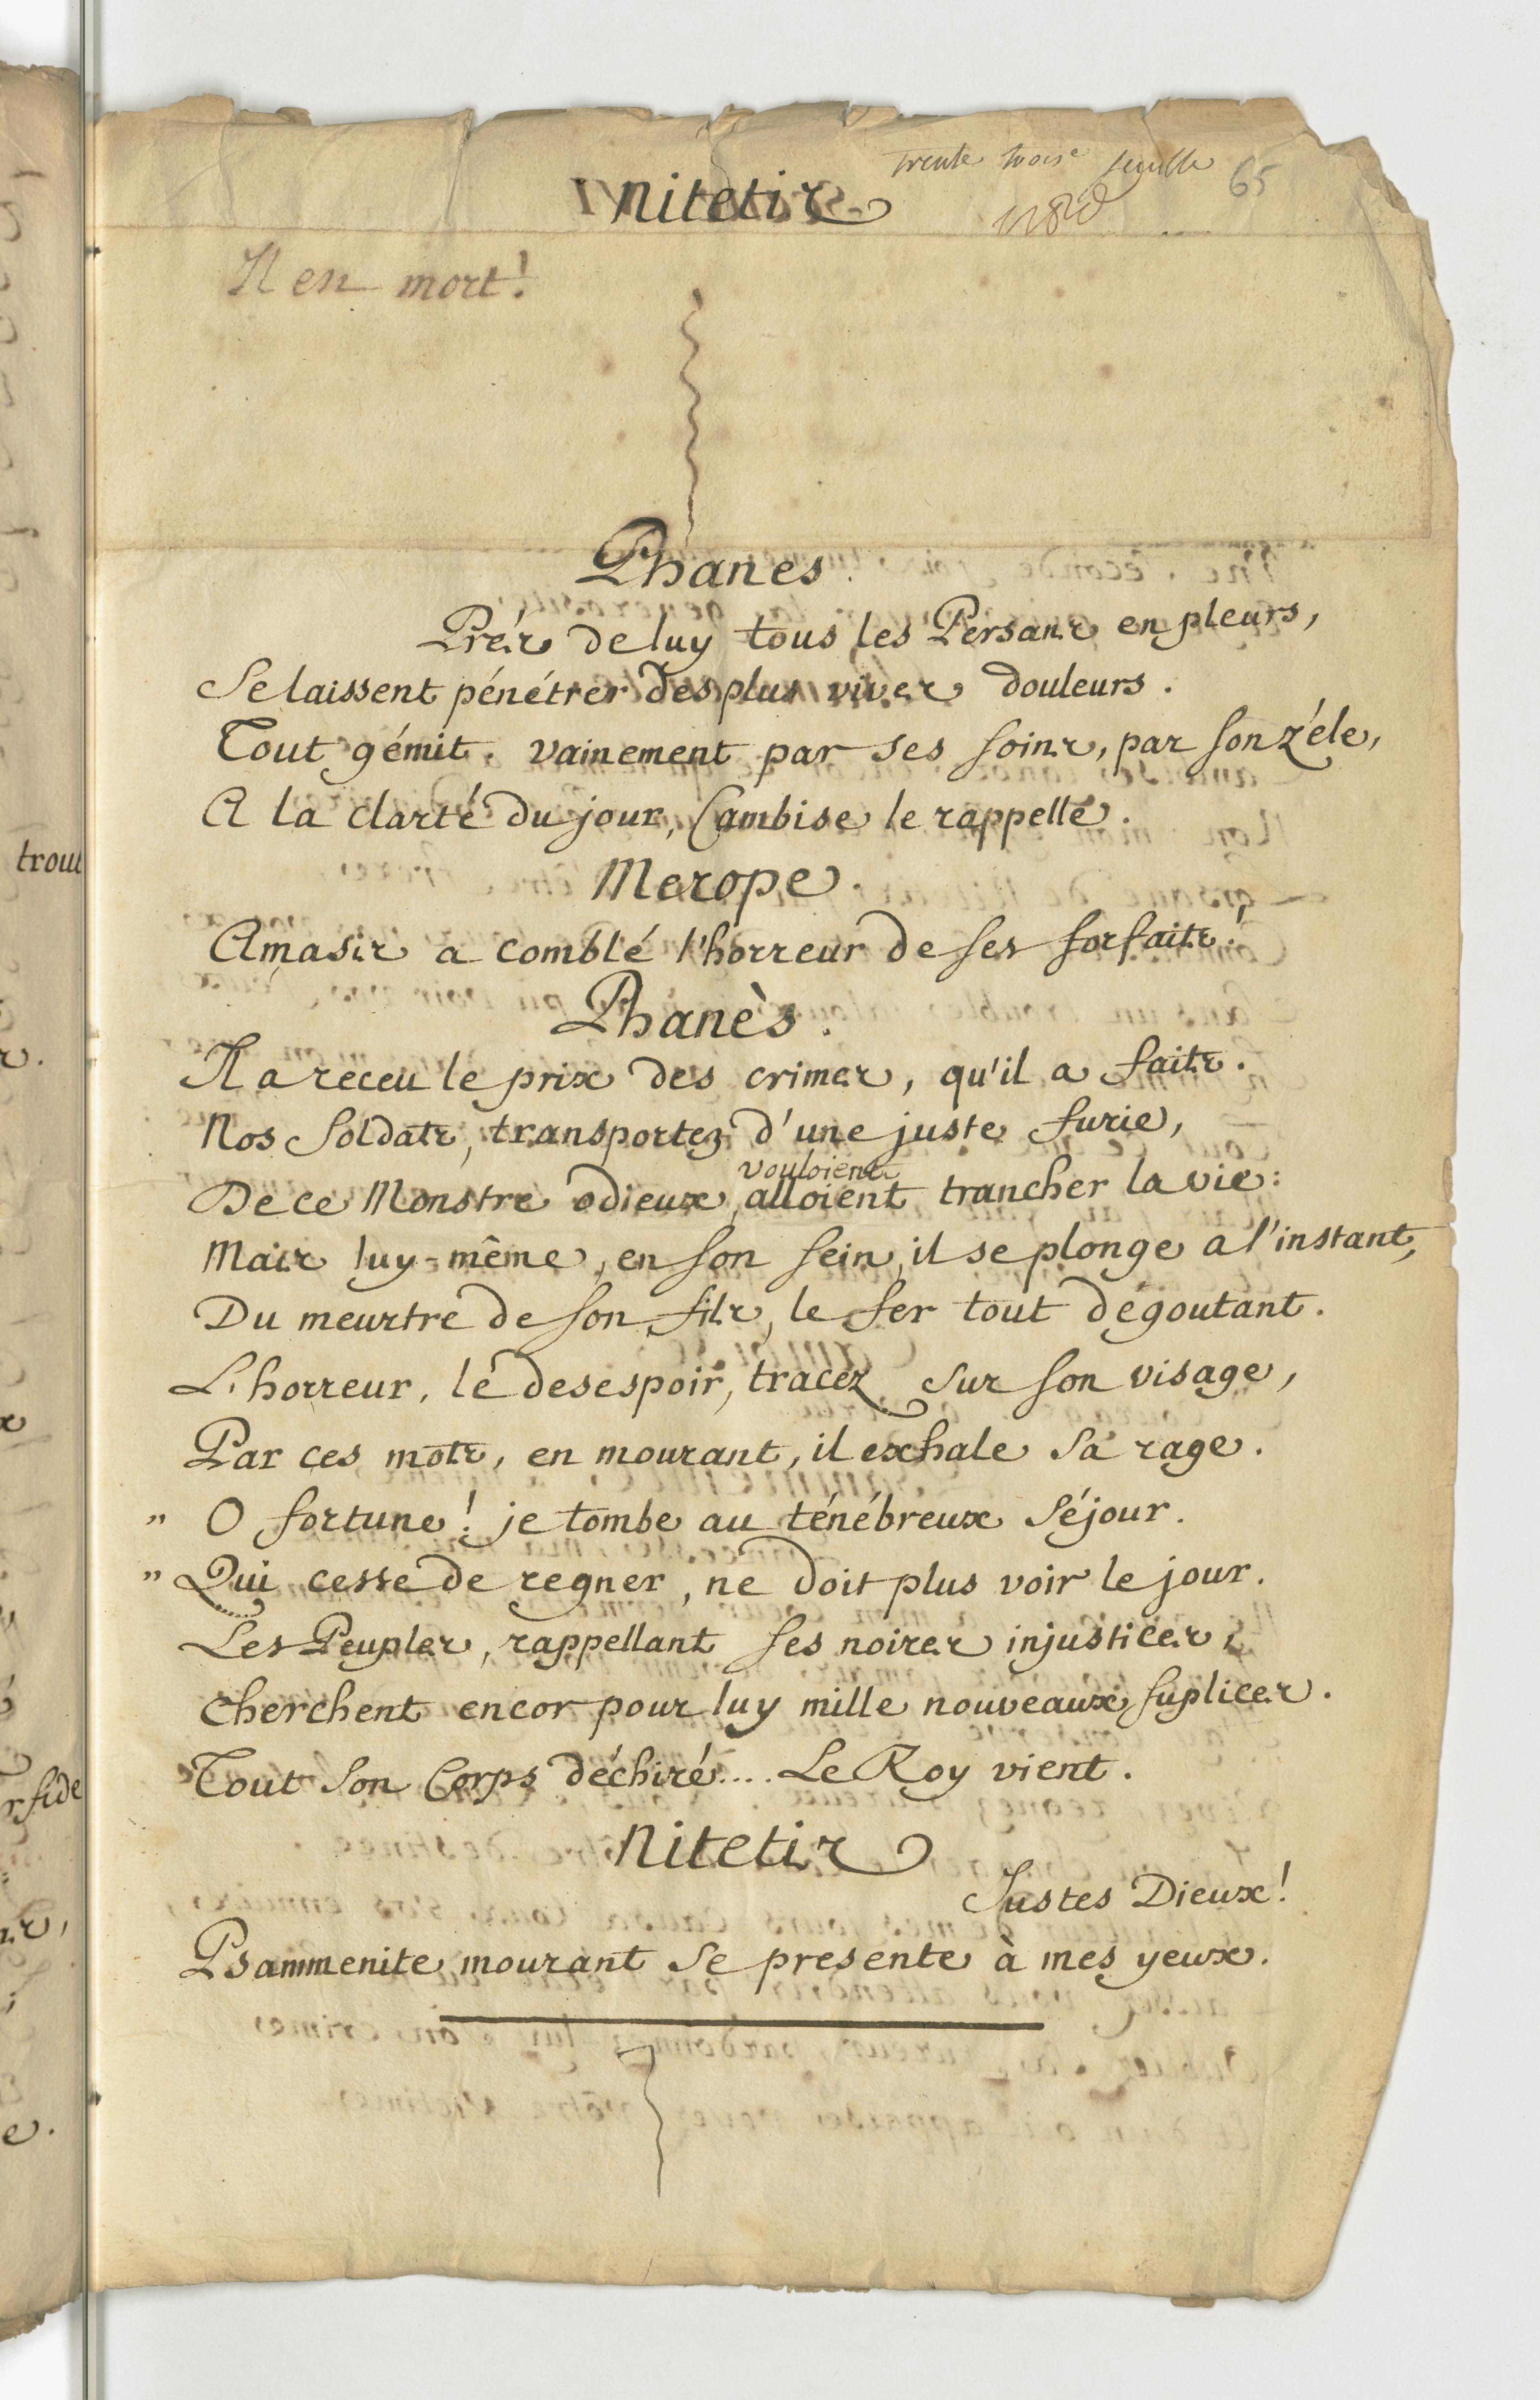 trente trois.e feuille 65
Nitetis
Il en mort!
Phanes.
Prés de luy tous les Persans en pleurs,
Se laissent pénétrer des plus vives douleurs.
Tout gémit. vainement par ses soins, par son zéle,
A la clarté du jour, Cambise le rappelle.
Merope.
Amasis a comblé l'horreur de ses forfaits!
Phanès.
Il a receu le prix des crimes, qu'il a faits.
Nos Soldats, transportez d'une juste furie,
vouloient
De ce Monstre odieux, alloient trancher la vie:
Mais luy-même, en son sein, il se plonge a l'instant,
Du meurtre de son fils, le fer tout dégoutant.
L'horreur, le desespoir, tracez sur son visage,
Par ces mots, en mourant, il exhale sa rage.
" O fortune! je tombe au ténébreux séjour.
" Qui cesse de regner, ne doit plus voir le jour.
Les Peuples, rappellant ses noires injustices,
Cherchent encor pour luy mille nouveaux suplices.
Tout son Corps déchiré.... Le Roy vient.
Nitetis
Justes Dieux!
Psammenite mourant se presente à mes yeux.